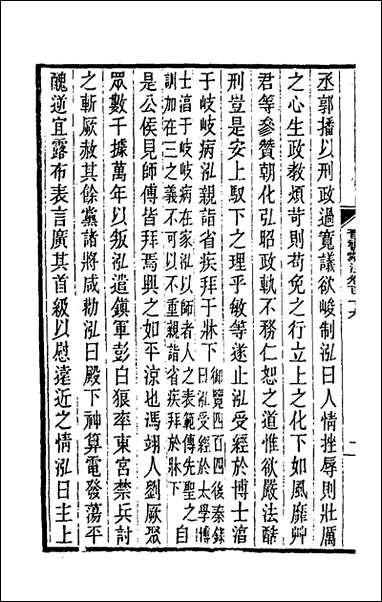 丞郭播以刑政過寬議欲峻制泓曰人情挫辱則壯厲
之心生政教煩苛則苟免之行立上之化下如風靡艸
君等參贊朝化弘昭政軌不務仁恕之道惟欲嚴法酷
刑豈是安上馭下之理乎敏等遂止泓受經於博士湻
于岐岐病泓親詣省疾拜于牀下御覽四百四後秦錄
曰泓受經於太學博
士湻于岐岐病在家泓以師者人之表範傳先聖之
訓加在三之義不可以不重親詣省疾拜於牀下自
是公侯見師傅皆拜焉興之如平涼也馮翊人劉厥聚
眾數千據萬年以叛泓遣鎮軍彭白狼率東宮禁兵討
之斬厥赦其餘黨諸將咸勸泓曰殿下神算電發蕩平
醜逆宜露布表言廣其首級以慰遠近之情泓曰主上